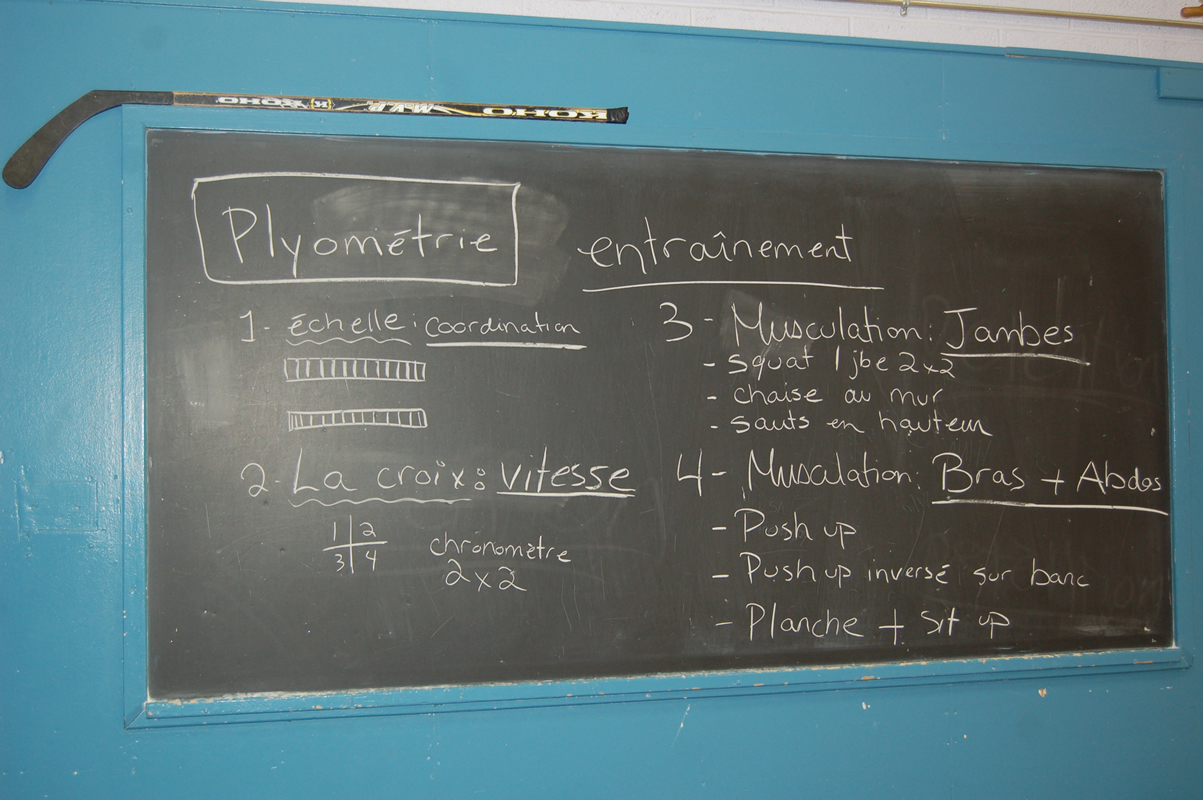 KOHO MVP K KOHO
Plyométrie
entraînement
1- échelle: coordination
2- La croix: vitesse
1 2
3 4
chronomètre
2x2
3- Musculation: Jambes
- squat 1 jbe 2x2
- chaise au mur
- sauts en hauteur
4- Musculation: Bras + Abdos
- Push up
- Push up inversé sur banc
- Planche + sit up